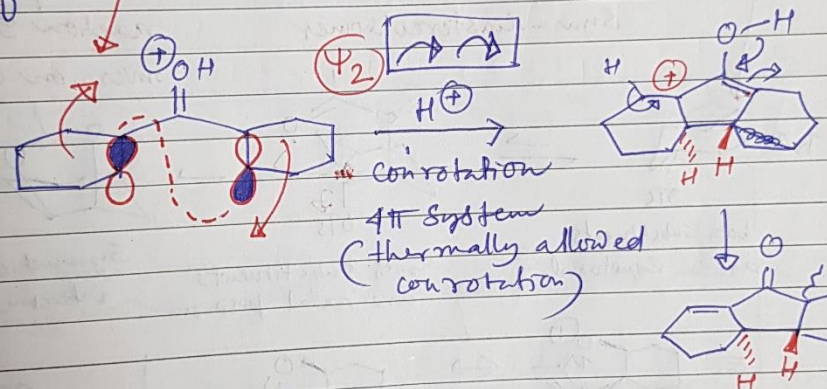 ⊕
OH
Ψ2
H⊕
conrotation
4π System
(thermally allowed
conrotation)
O-H
H
⊕
H
H
O
H
H